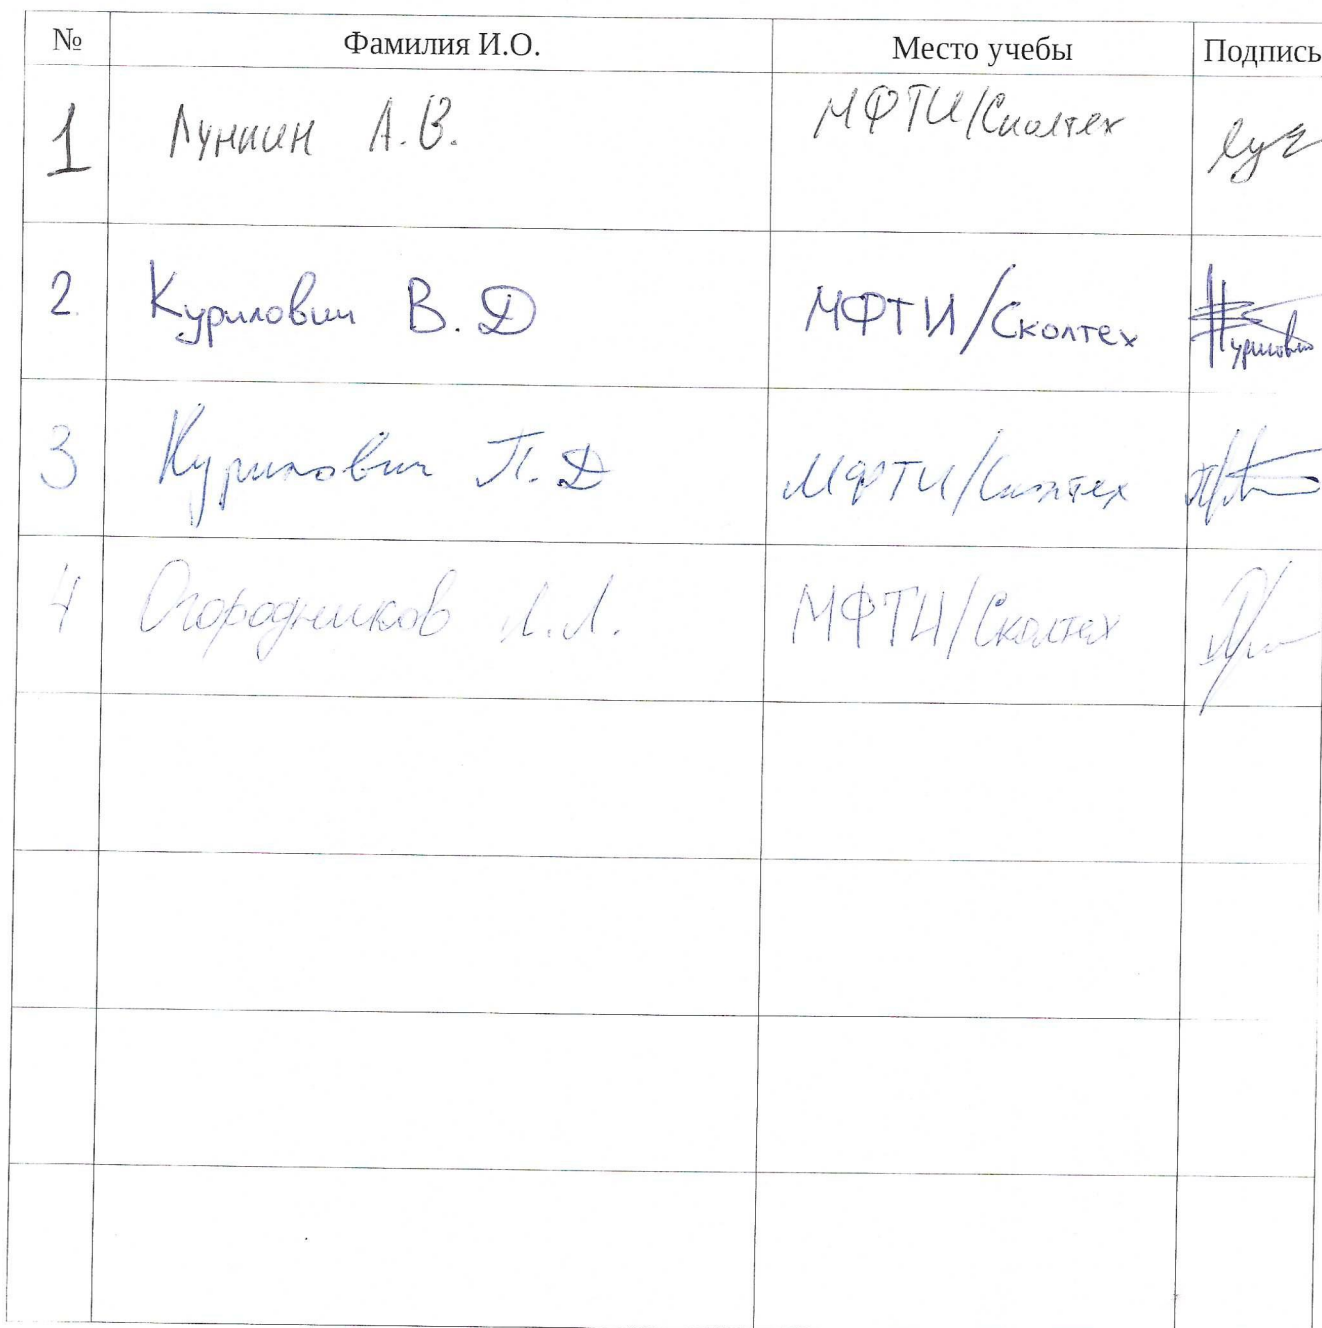 № Фамилия И.О. Место учебы Подпись
1 Лункин А.В. МФТИ/Сколтех
2. Курилович В.Д МФТИ/Сколтех Курилович
3 Курилович П.Д МФТИ/Сколтех
4 Огородников Л.Л. МФТИ/Сколтех